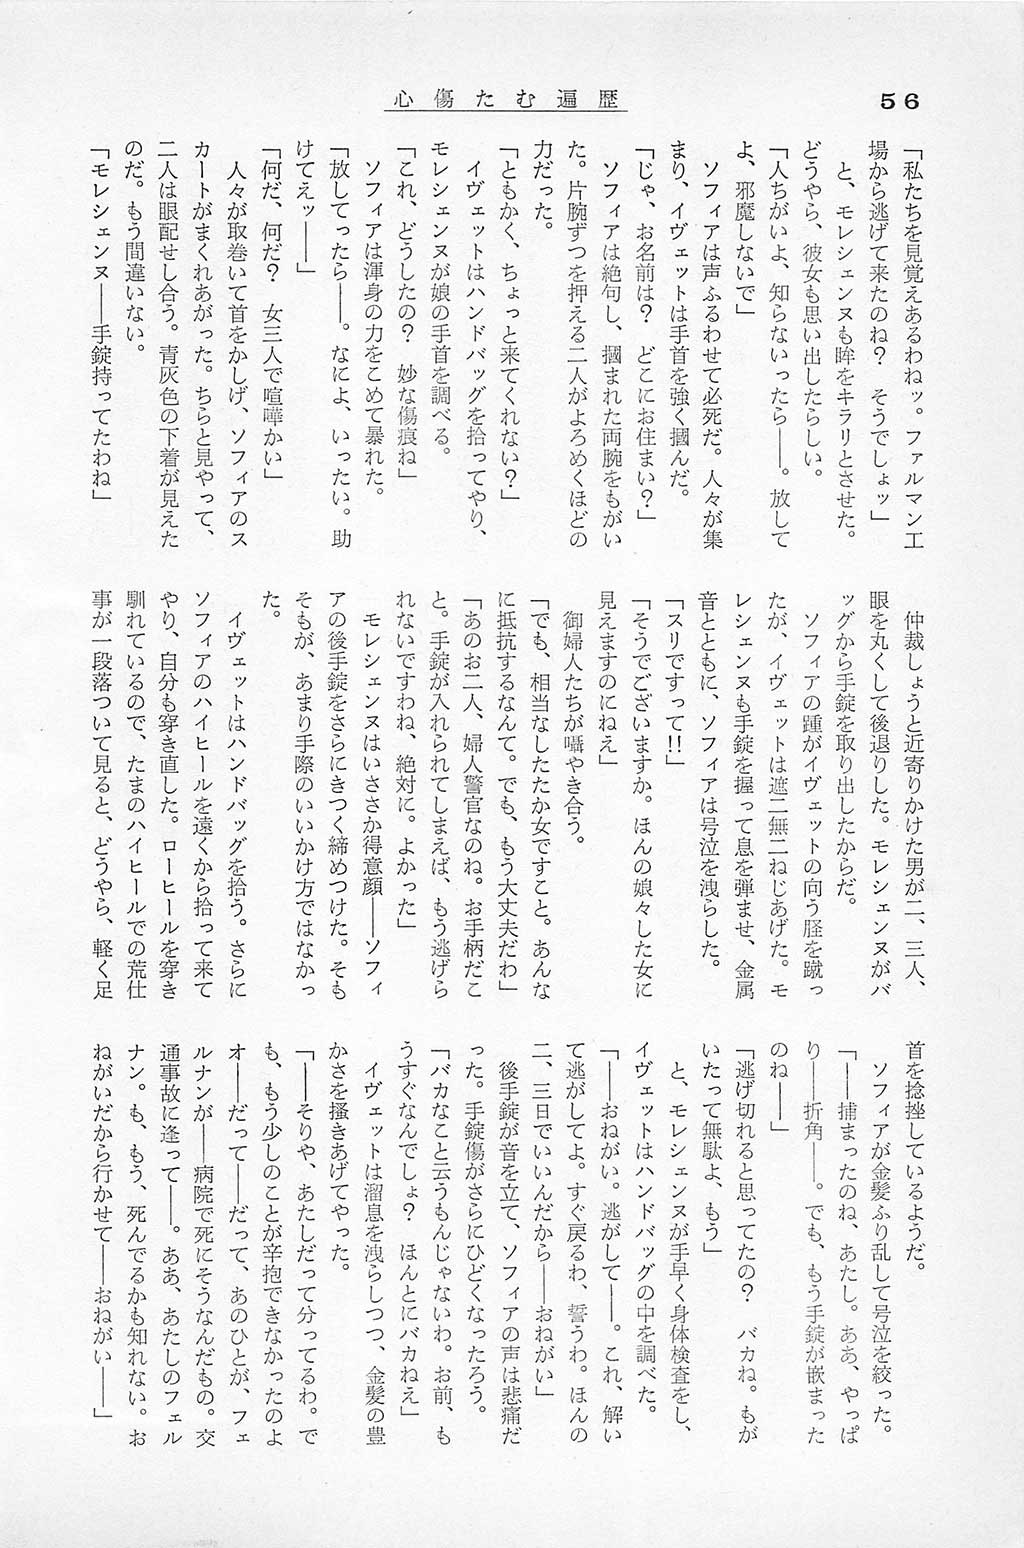 心傷たむ遍歴
56
「私たちを見覚えあるわねッ。ファルマン工
場から逃げて来たのね？　そうでしょッ」
と、モレシェンヌも眸をキラリとさせた。
どうやら、彼女も思い出したらしい。
「人ちがいよ、知らないったら――。放して
よ、邪魔しないで」
ソフィアは声ふるわせて必死だ。人々が集
まり、イヴェットは手首を強く掴んだ。
「じゃ、お名前は？　どこにお住まい？」
ソフィアは絶句し、掴まれた両腕をもがい
た。片腕ずつを押える二人がよろめくほどの
力だった。
「ともかく、ちょっと来てくれない？」
イヴェットはハンドバッグを拾ってやり、
モレシェンヌが娘の手首を調べる。
「これ、どうしたの？　妙な傷痕ね」
ソフィアは渾身の力をこめて暴れた。
「放してったら――。なによ、いったい。助
けてえッ――」
「何だ、何だ？　女三人で喧嘩かい」
人々が取巻いて首をかしげ、ソフィアのス
カートがまくれあがった。ちらと見やって、
二人は眼配せし合う。青灰色の下着が見えた
のだ。もう間違いない。
「モレシェンヌ――手錠持ってたわね」
仲裁しょうと近寄りかけた男が二、三人、
眼を丸くして後退りした。モレシェンヌがバ
ッグから手錠を取り出したからだ。
ソフィアの踵がイヴェットの向う脛を蹴っ
たが、イヴェットは遮二無二ねじあげた。モ
レシェンヌも手錠を握って息を弾ませ、金属
音とともに、ソフィアは号泣を洩らした。
「スリですって!!」
「そうでございますか。ほんの娘々した女に
見えますのにねえ」
御婦人たちが囁やき合う。
「でも、相当なしたたか女ですこと。あんな
に抵抗するなんて。でも、もう大丈夫だわ」
「あのお二人、婦人警官なのね。お手柄だこ
と。手錠が入れられてしまえば、もう逃げら
れないですわね、絶対に。よかった」
モレシェンヌはいささか得意顔――ソフィ
アの後手錠をさらにきつく締めつけた。そも
そもが、あまり手際のいいかけ方ではなかっ
た。
イヴェットはハンドバッグを拾う。さらに
ソフィアのハイヒールを遠くから拾って来て
やり、自分も穿き直した。ローヒールを穿き
馴れているので、たまのハイヒールでの荒仕
事が一段落ついて見ると、どうやら、軽く足
首を捻挫しているようだ。
ソフィアが金髪ふり乱して号泣を絞った。
「――捕まったのね、あたし。ああ、やっぱ
り――折角――。でも、もう手錠が嵌まった
のね――」
「逃げ切れると思ってたの？　バカね。もが
いたって無駄よ、もう」
と、モレシェンヌが手早く身体検査をし、
イヴェットはハンドバッグの中を調べた。
「――おねがい。逃がして――。これ、解い
て逃がしてよ。すぐ戻るわ、誓うわ。ほんの
二、三日でいいんだから――おねがい」
後手錠が音を立て、ソフィアの声は悲痛だ
った。手錠傷がさらにひどくなったろう。
「バカなこと云うもんじゃないわ。お前、も
うすぐなんでしょ？　ほんとにバカねえ」
イヴェットは溜息を洩らしつつ、金髪の豊
かさを掻きあげてやった。
「――そりゃ、あたしだって分ってるわ。で
も、もう少しのことが辛抱できなかったのよ
オ――だって――だって、あのひとが、フェ
ルナンが――病院で死にそうなんだもの。交
通事故に逢って――。ああ、あたしのフェル
ナン。も、もう、死んでるかも知れない。お
ねがいだから行かせて――おねがい――」